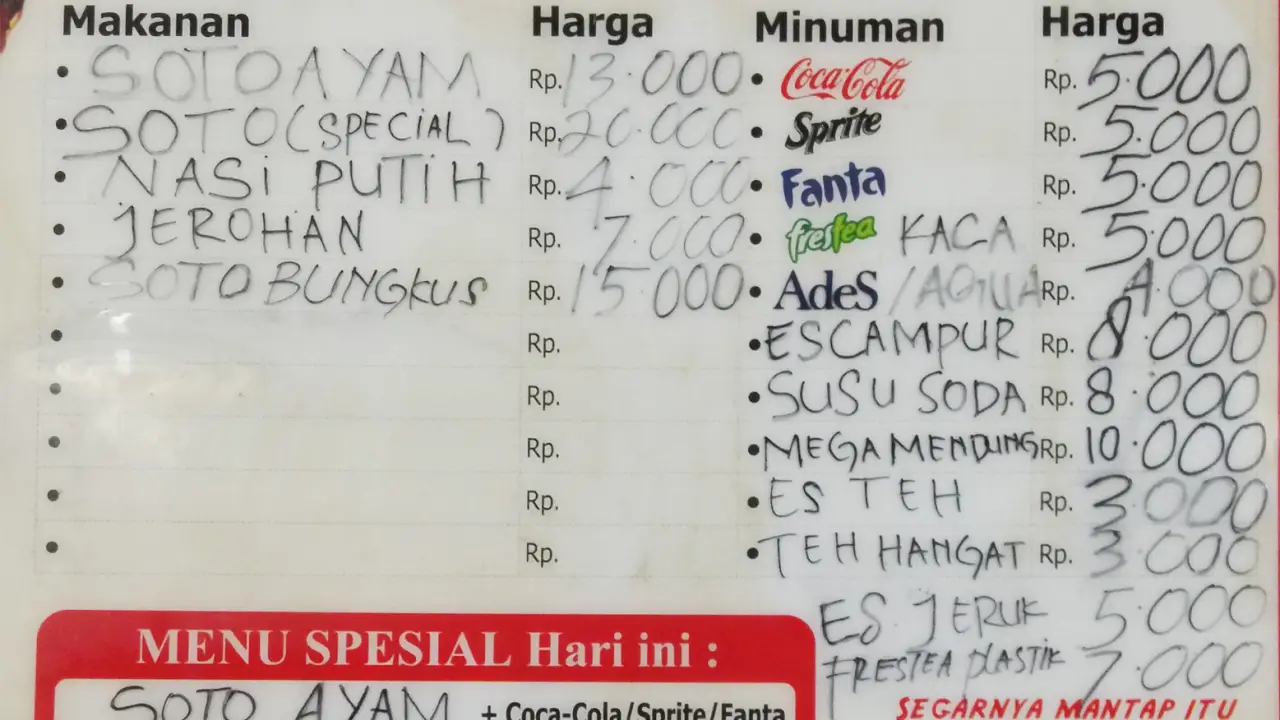 Makanan Harga Minuman Harga
• SOTO AYAM Rp. 13.000 • Coca-Cola Rp. 5.000
• SOTO (SPECIAL) Rp. 20.000 • Sprite Rp. 5.000
• NASI PUTIH Rp. 4.000 • Fanta Rp. 5.000
• JEROHAN Rp. 7.000 • frestea KACA Rp. 5.000
• SOTO BUNGKUS Rp. 15.000 • AdeS /AQUA Rp. 4.000
• Rp. • ES CAMPUR Rp. 8.000
• Rp. • SUSU SODA Rp. 8.000
• Rp. • MEGA MENDUNG Rp. 10.000
• Rp. • ES TEH Rp. 3.000
• Rp. • TEH HANGAT Rp. 3.000
ES JERUK 5.000
FRESTEA PLASTIK 7.000
MENU SPESIAL Hari ini :
SEGARNYA MANTAP ITU
SOTO AYAM + Coca-Cola/Sprite/Fanta